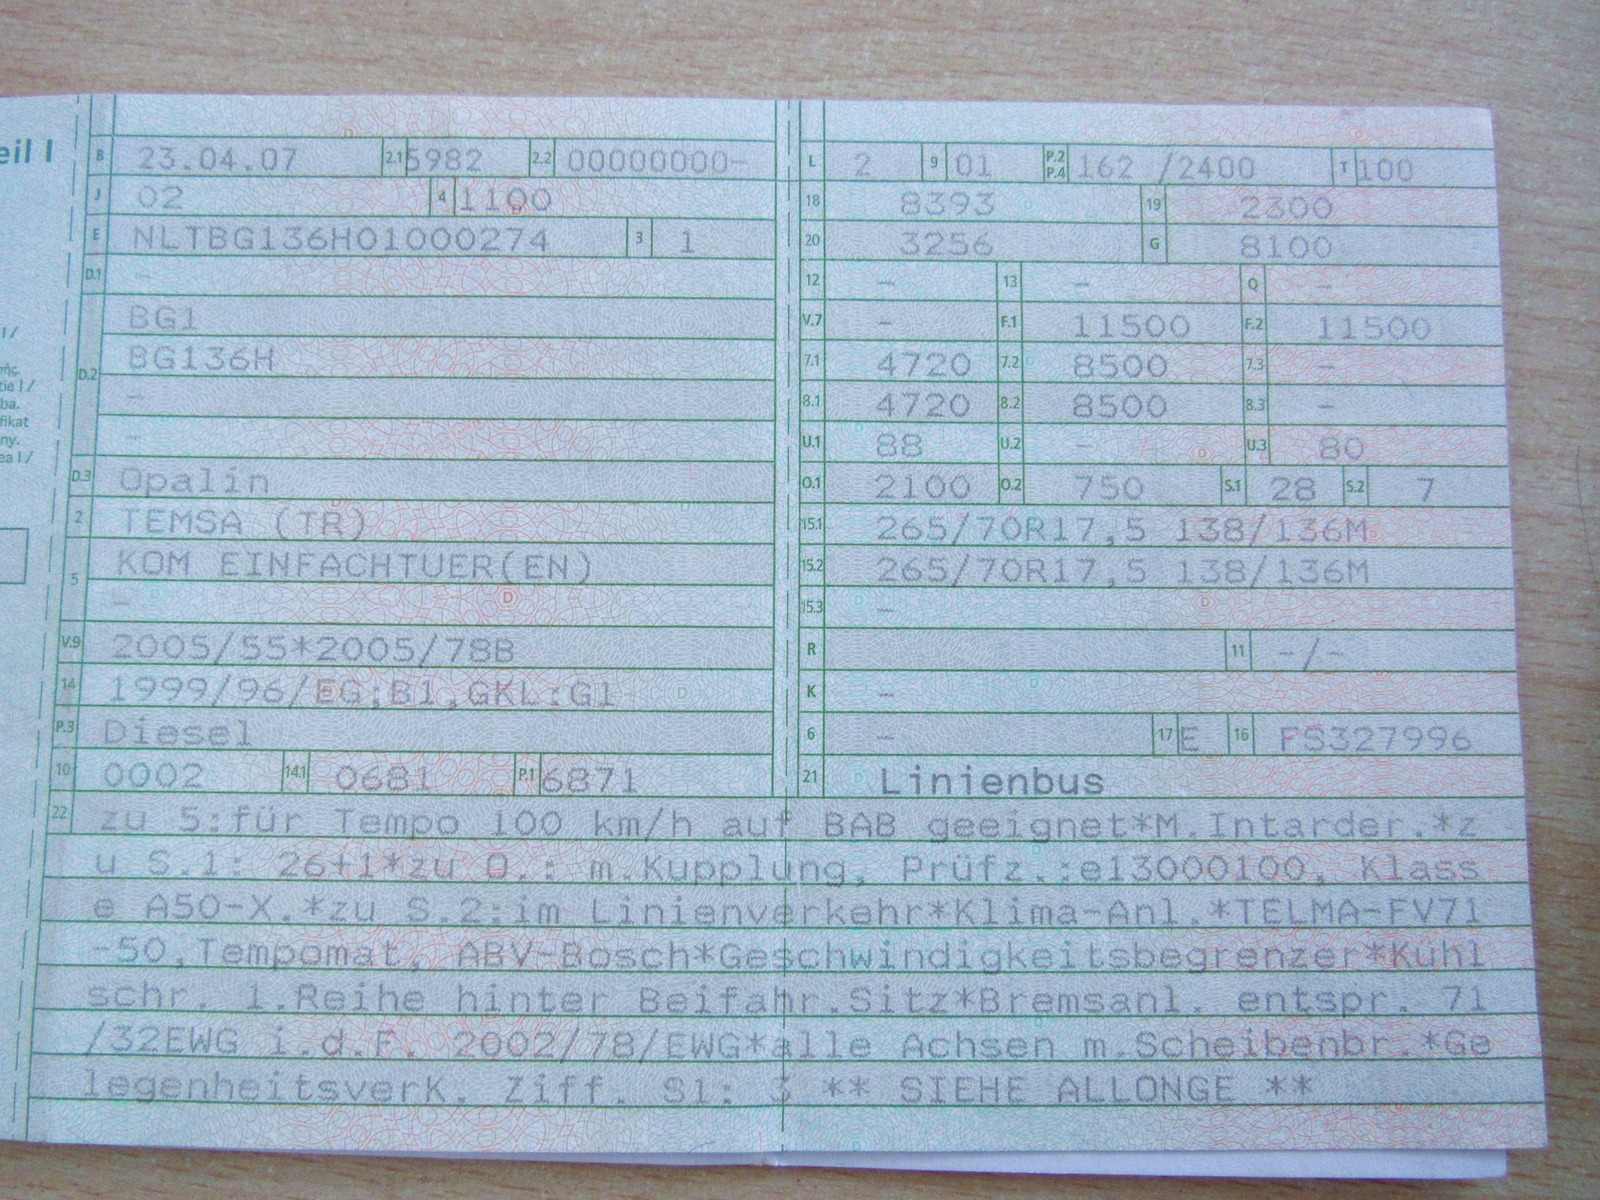 eil I
B 23.04.07 2.1 5982 2.2 00000000-
J 02 4 1100
E NLTBG136H01000274 3 1
D.1 -
D.2 BG1
BG136H
-
-
D.3 Opalin
2 TEMSA (TR)
5 KOM EINFACHTUER(EN)
-
V.9 2005/55*2005/78B
14 1999/96/EG;B1,GKL:G1
P.3 Diesel
10 0002 14.1 0681 P.1 6871
L 2 9 01 P.2 P.4 162 /2400 T 100
18 8393 19 2300
20 3256 G 8100
12 - 13 - Q -
V.7 - F.1 11500 F.2 11500
7.1 4720 7.2 8500 7.3 -
8.1 4720 8.2 8500 8.3 -
U.1 88 U.2 - U.3 80
O.1 2100 O.2 750 S.1 28 S.2 7
15.1 265/70R17,5 138/136M
15.2 265/70R17,5 138/136M
15.3 -
R 11 -/-
K -
6 - 17 E 16 FS327996
21 Linienbus
22 zu 5:für Tempo 100 km/h auf BAB geeignet*M.Intarder.*z
u S.1: 26+1*zu O.: m.Kupplung, Prüfz.:e13000100, Klass
e A50-X.*zu S.2:im Linienverkehr*Klima-Anl.*TELMA-FV71
-50,Tempomat, ABV-Bosch*Geschwindigkeitsbegrenzer*Kühl
schr. 1.Reihe hinter Beifahr.Sitz*Bremsanl. entspr. 71
/32EWG i.d.F. 2002/78/EWG*alle Achsen m.Scheibenbr.*Ge
legenheitsverk. Ziff. S1: 3 ** SIEHE ALLONGE **